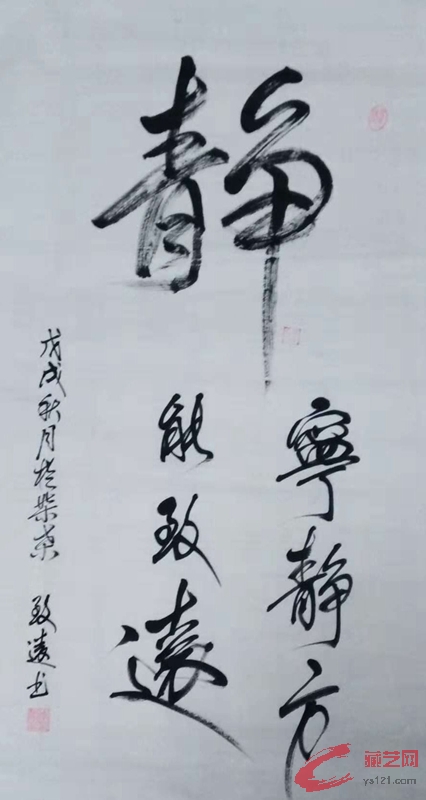 静
寧静方
能致遠
戊戌秋月於柴桑 致遠书
藏艺网
ys121.com